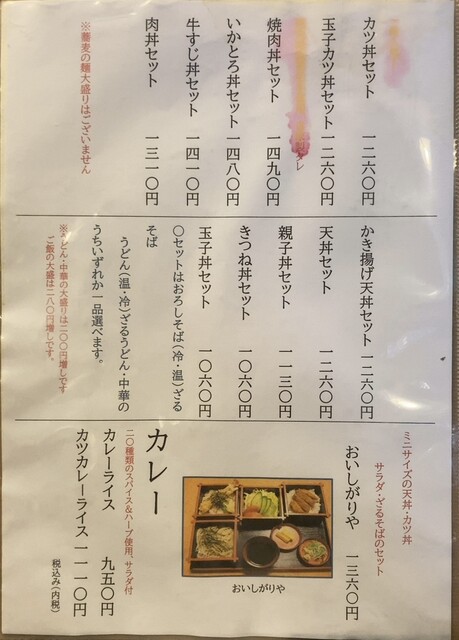 カツ丼セット 一二六〇円
玉子カツ丼セット 一二六〇円
タレ
焼肉丼セット 一四九〇円
いかとろ丼セット 一四八〇円
牛すじ丼セット 一四一〇円
肉丼セット 一三一〇円
※蕎麦の麺大盛りはございません
かき揚げ天丼セット 一二六〇円
天丼セット 一二六〇円
親子丼セット 一一三〇円
きつね丼セット 一〇六〇円
玉子丼セット 一〇六〇円
〇セットはおろしそば(冷・温)ざる
そば
うどん(温・冷)ざるうどん・中華の
うちいずれか一品選べます。
※うどん・中華の大盛りは二〇〇円増しです
ご飯の大盛は二八〇円増しです。
ミニサイズの天丼・カツ丼
サラダ・ざるそばのセット
おいしがりや 一三六〇円
おいしがりや
カレー
二〇種類のスパイス&ハーブ使用、サラダ付
カレーライス 九五〇円
カツカレーライス 一一一〇円
税込み(内税)